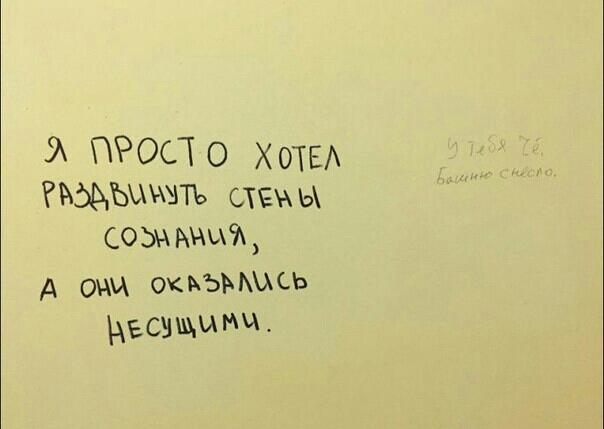 Я ПРОСТО ХОТЕЛ
РАЗДВИНУТЬ СТЕНЫ
СОЗНАНИЯ,
А ОНИ ОКАЗАЛИСЬ
НЕСУЩИМИ.
У тебя чё,
Башню снесло.